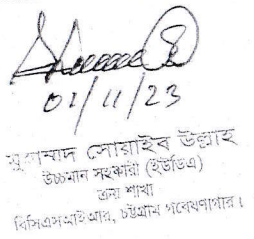 01/11/23
মুহাম্মদ সোয়াইব উল্লাহ
উচ্চমান সহকারী (ইউডিএ)
ক্রয় শাখা
বিসিএসআইআর, চট্টগ্রাম গবেষণাগার।